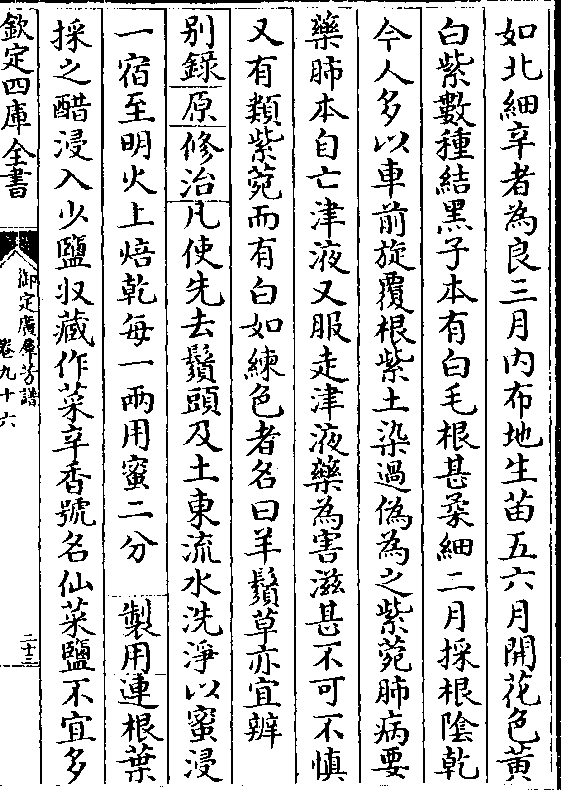 如北細辛者為良三月内布地生苗五六月開花色黄
白紫數種結黒子本有白毛根甚柔細二月採根隂乾
今人多以車前旋覆根紫土染過偽為之紫菀肺病要
藥肺本自亡津液又服走津液藥為害滋甚不可不慎
又有類紫菀而有白如練色者名曰羊鬚草亦宜辨
别錄原修治凡使先去鬚頭及土東流水洗淨以蜜浸
一宿至明火上焙乾每一兩用蜜二分 製用連根葉
採之醋浸入少鹽収藏作菜辛香號名仙菜鹽不宜多
欽定四庫全書
御定廣羣芳譜
卷九十六
二十三